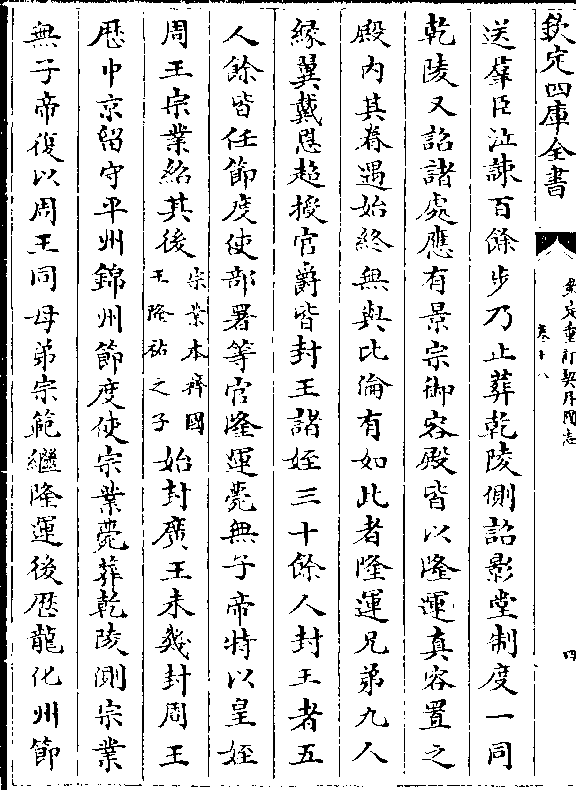 欽定四庫全書
欽定重訂契丹國志
卷十八
四
送羣臣泣諫百餘步乃止葬乾陵側詔影堂制度一同
乾陵又詔諸處應有景宗御容殿皆以隆運真容置之
殿内其眷遇始終無與比倫有如此者隆運兄弟九人
緣翼戴恩超授官爵皆封王諸姪三十餘人封王者五
人餘皆任節度使部署等官隆運薨無子帝特以皇姪
周王宗業紹其後
宗業本齊國
王隆祐之子
始封廣王未幾封周王
歴中京留守平州錦州節度使宗業薨葬乾陵測宗業
無子帝復以周王同母弟宗範繼隆運後歴龍化州節